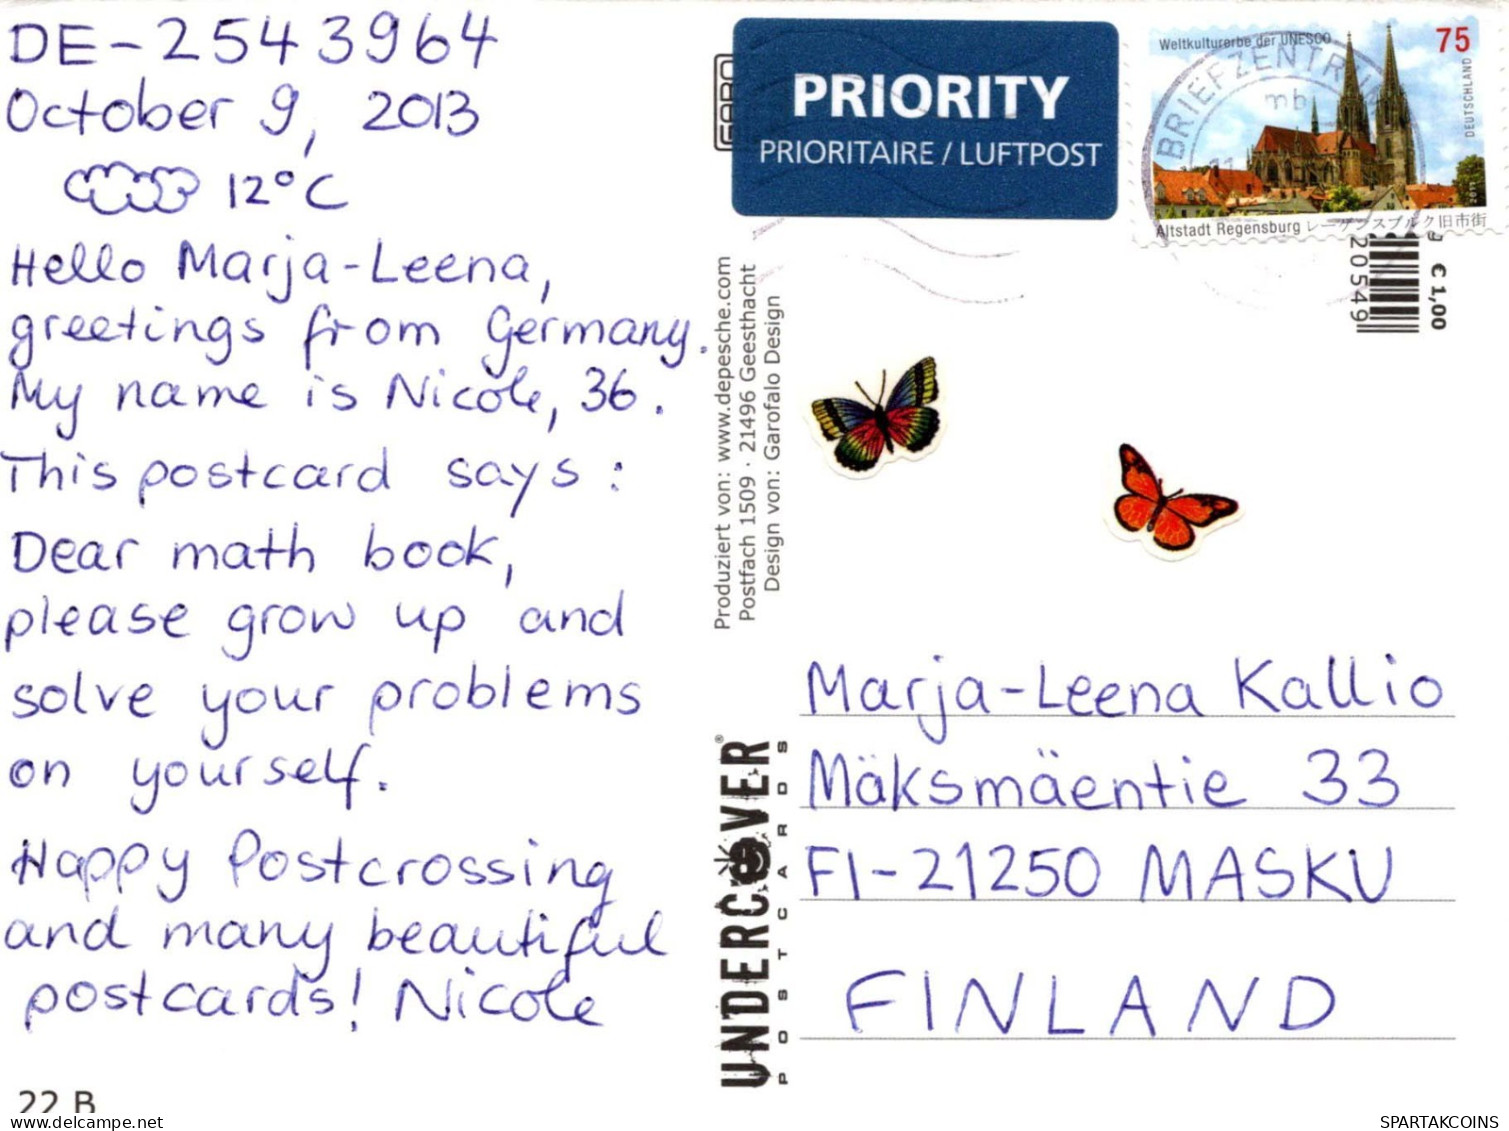 DE-2543964
October 9, 2013
12°C
Hello Marja-Leena,
greetings from Germany.
My name is Nicole, 36.
This postcard says:
Dear math book,
please grow up and
solve your problems
on yourself.
Happy Postcrossing
and many beautiful
postcards! Nicole
22 B
PRIORITY
PRIORITAIRE / LUFTPOST
Weltkulturerbe der UNESCO
75
DEUTSCHLAND
2011
BRIEFZENTRUM
mb
Altstadt Regensburg レーゲンスブルク旧市街
€ 1,00
20549
Produziert von: www.depesche.com
Postfach 1509 · 21496 Geesthacht
Design von: Garofalo Design
UNDERCOVER®
POSTCARDS
Marja-Leena Kallio
Mäksmäentie 33
FI-21250 MASKU
FINLAND
www.delcampe.net
SPARTAKCOINS